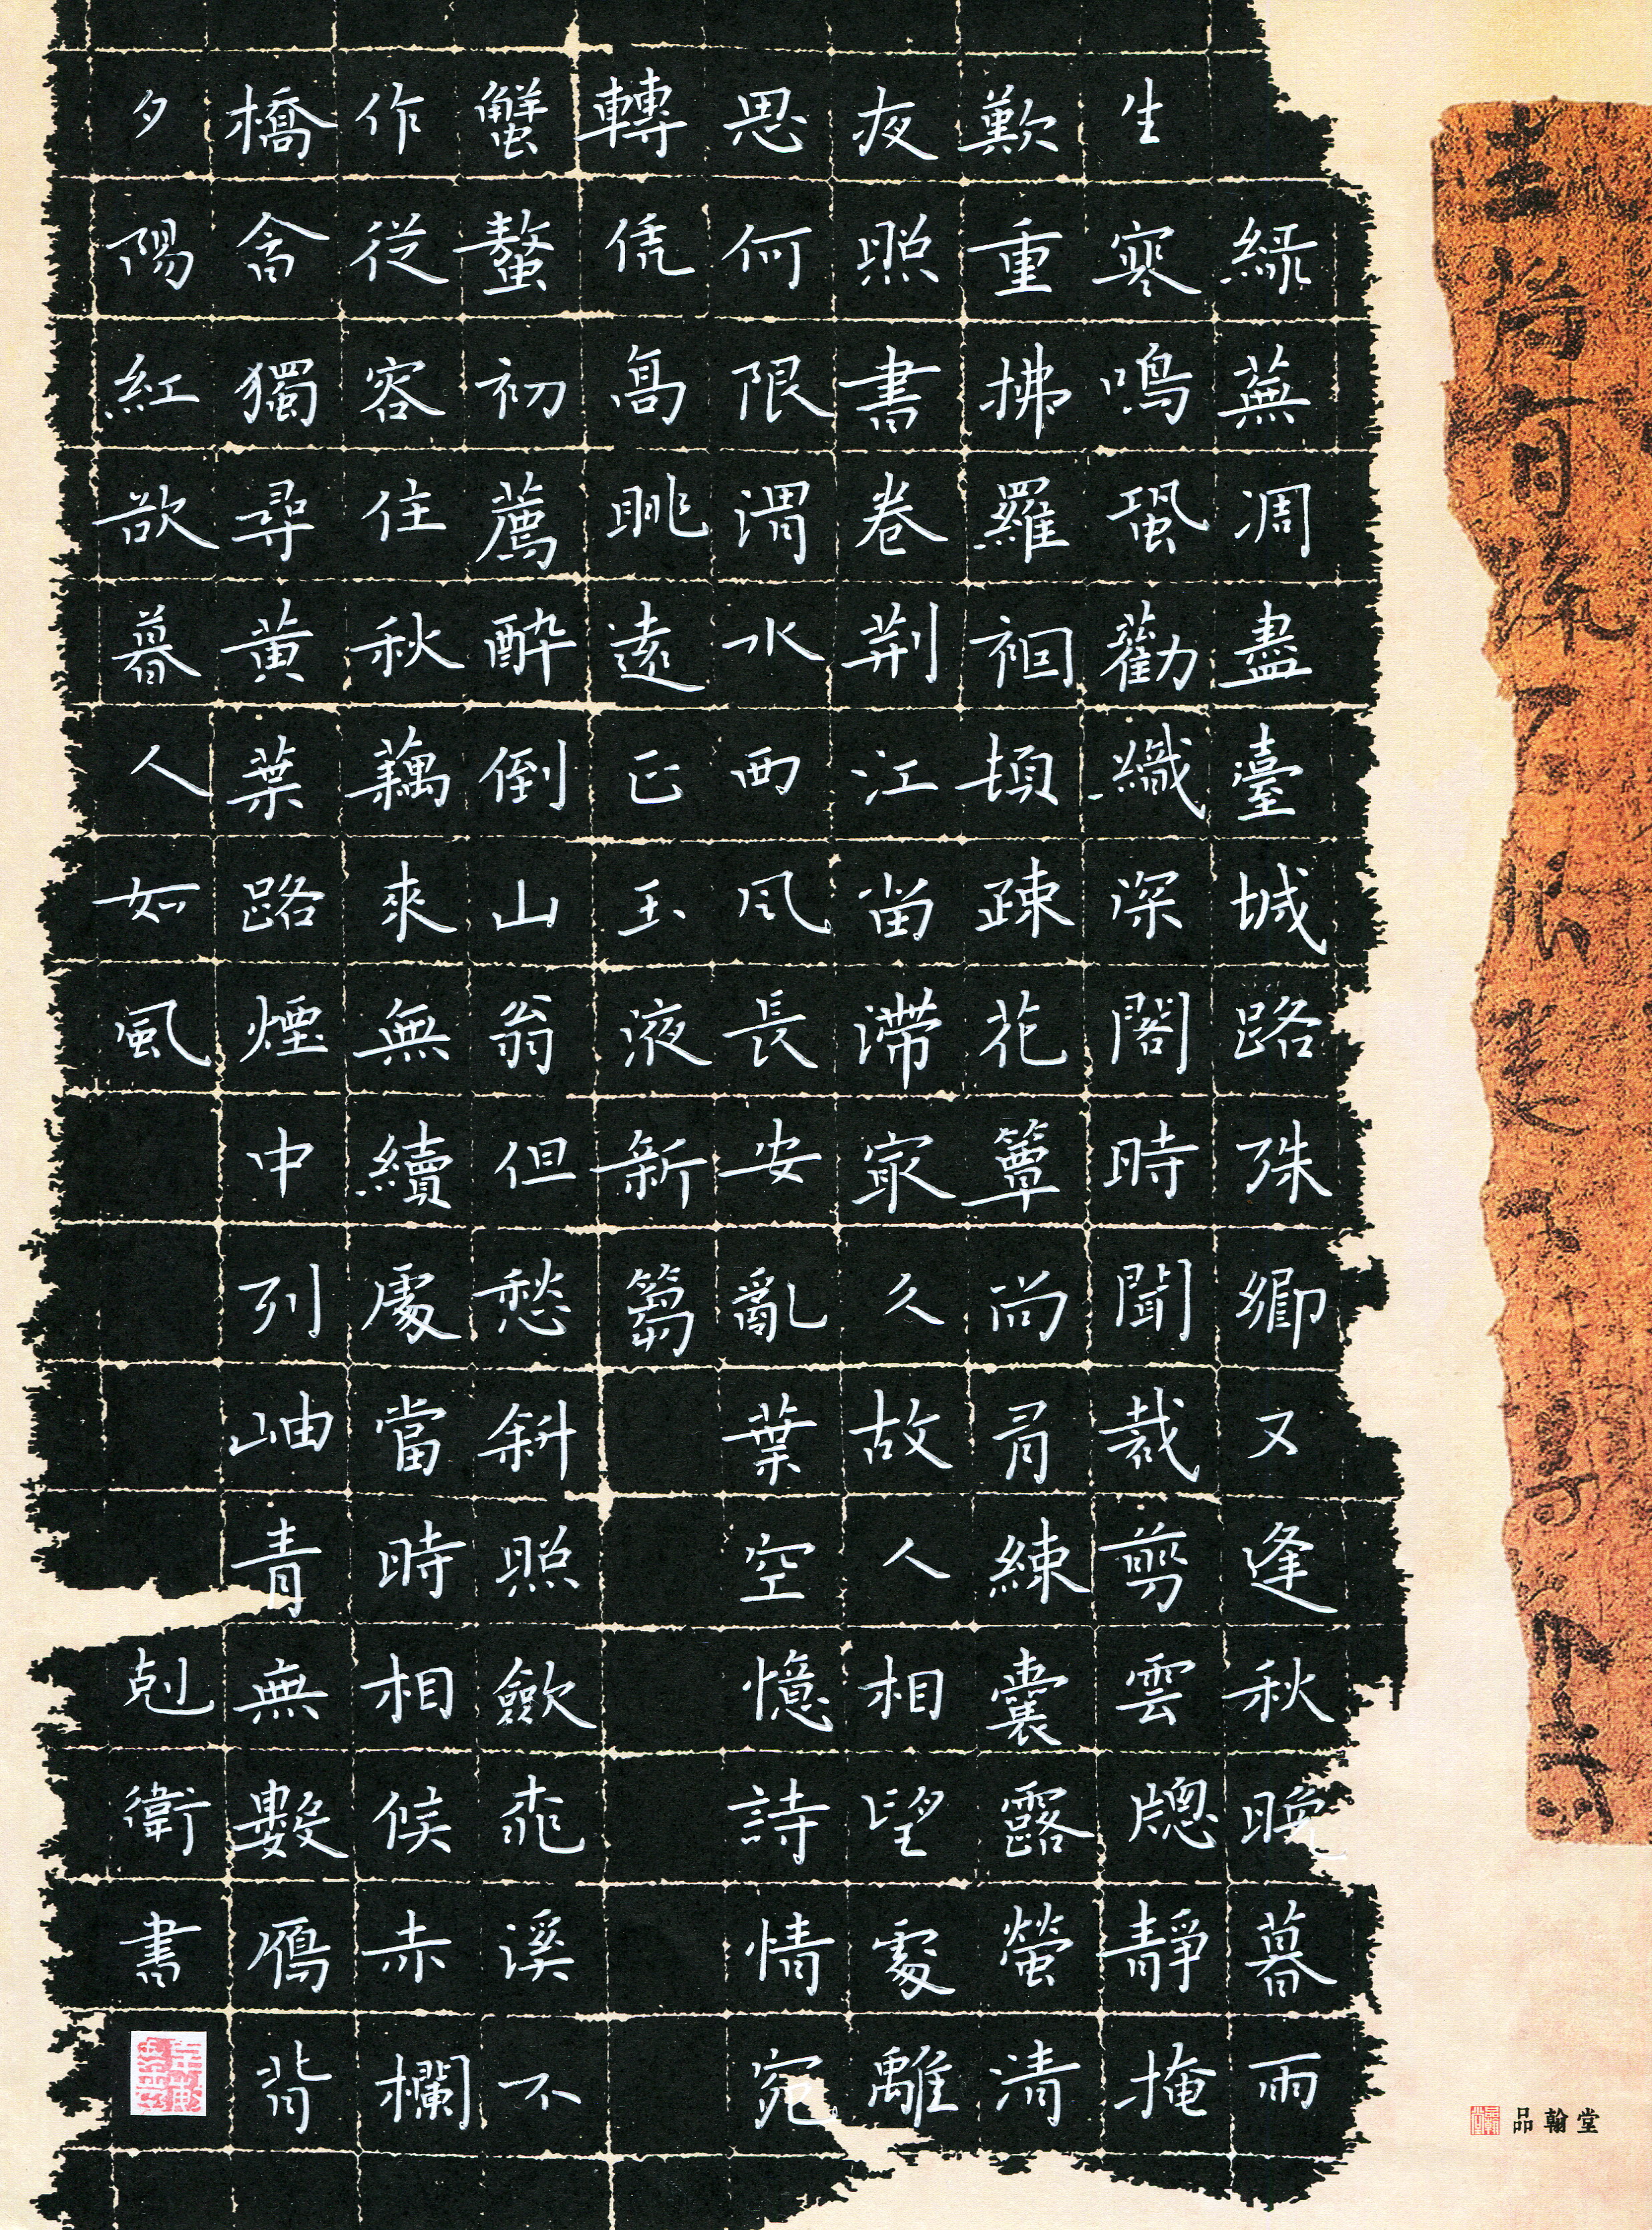 綠蕪凋盡臺城路殊鄉又逢秋晚暮雨
生寒鳴蛩勸織深閣時聞裁剪雲牕靜掩
歎重拂羅裀頓疎花簟尚有練囊露螢清
夜照書卷荆江留滯最久故人相望處離
思何限渭水西風長安亂葉空憶詩情宛
轉凭高眺遠正玉液新篘
蟹螯初薦醉倒山翁但愁斜照歛桃溪不
作從容住秋藕來無續處當時相候赤欄
橋今獨尋黃葉路煙中列岫青無數鴈背
夕陽紅欲暮人如風
尅衛書
品翰堂